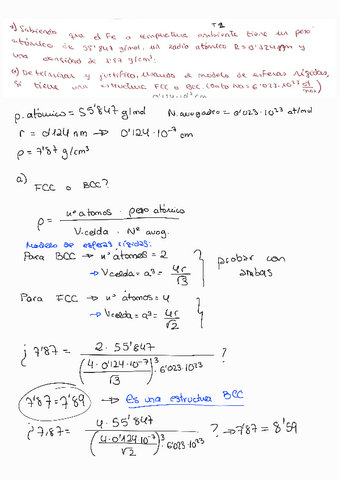 T2
1) Sabiendo que el Fe a temperatura ambiente tiene un peso
atómico de 55'847 g/mol, un radio atómico R=0'124nm y
una densidad de 7'87 g/cm³:
a) Determinar y justificar, usando el modelo de esferas rígidas,
si tiene una estructura FCC o BCC. (Dato Nº=6'023·10²³ at/mol)
0'124·10⁻⁷ cm
p.atómico = 55'847 g/mol N.avogadro = 6'023·10²³ at/mol
r = 0'124 nm → 0'124·10⁻⁷ cm
ρ = 7'87 g/cm³
a)
FCC o BCC?
ρ = nº átomos · peso atómico / Vcelda · Nº avog.
Modelo de esferas rígidas:
Para BCC → nº átomos = 2
→ Vcelda = a³ = 4r/√3
probar con ambas
Para FCC → nº átomos = 4
→ Vcelda = a³ = 4r/√2
¿ 7'87 = 2·55'847 / (4·0'124·10⁻⁷/√3)³ · 6'023·10²³ ?
7'87 = 7'89 → Es una estructura BCC
¿ 7,87 = 4·55'847 / (4·0'124·10⁻⁷/√2)³ · 6'023·10²³ ? → 7'87 = 8'59